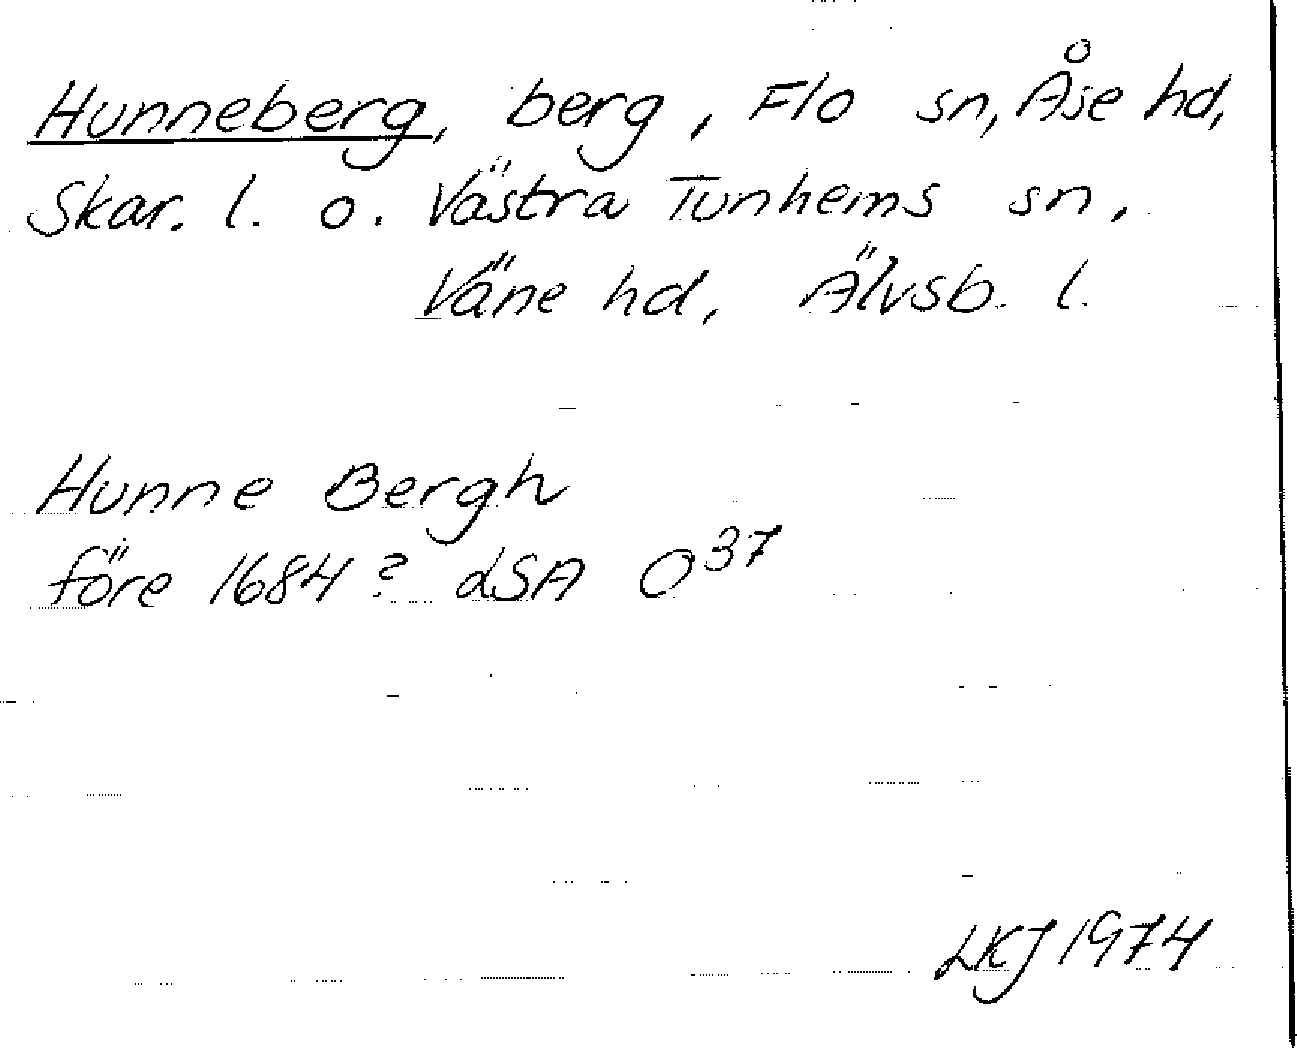 Hunneberg, berg, Flo sn, Åse hd,
Skar. l. o. Västra Tunhems sn,
Väne hd, Älvsb. l.
Hunne Bergh
före 1684? LSA O37
LKJ 1974